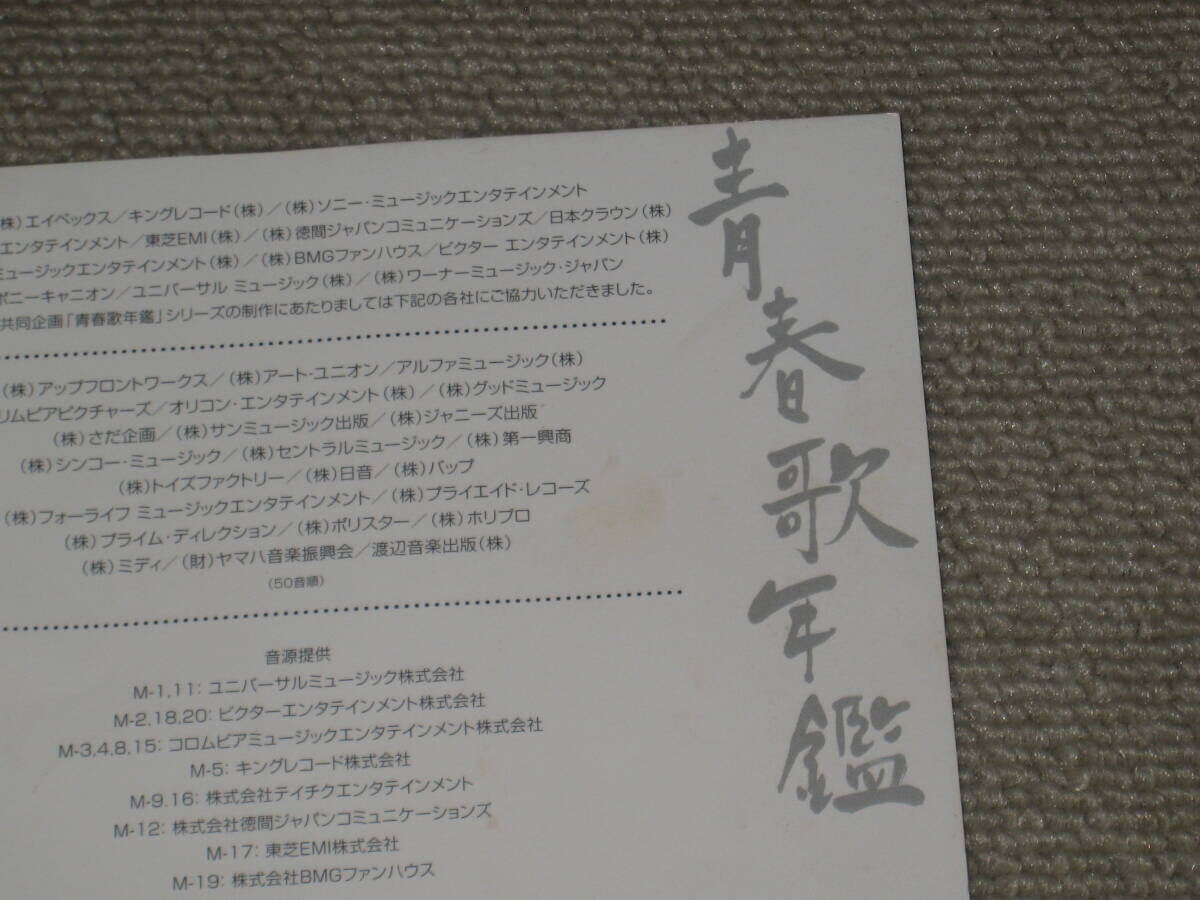 株）エイベックス／キングレコード（株）／（株）ソニー・ミュージックエンタテインメント
エンタテインメント／東芝EMI（株）／（株）徳間ジャパンコミュニケーションズ／日本クラウン（株）
ミュージックエンタテインメント（株）／（株）BMGファンハウス／ビクター エンタテインメント（株）
ポニーキャニオン／ユニバーサル ミュージック（株）／（株）ワーナーミュージック・ジャパン
共同企画「青春歌年鑑」シリーズの制作にあたりましては下記の各社にご協力いただきました。
（株）アップフロントワークス／（株）アート・ユニオン／アルファミュージック（株）
リムビアピクチャーズ／オリコン・エンタテインメント（株）／（株）グッドミュージック
（株）さだ企画／（株）サンミュージック出版／（株）ジャニーズ出版
（株）シンコー・ミュージック／（株）セントラルミュージック／（株）第一興商
（株）トイズファクトリー／（株）日音／（株）バップ
（株）フォーライフ ミュージックエンタテインメント／（株）プライエイド・レコーズ
（株）プライム・ディレクション／（株）ポリスター／（株）ホリプロ
（株）ミディ／（財）ヤマハ音楽振興会／渡辺音楽出版（株）
（50音順）
音源提供
M-1,11: ユニバーサルミュージック株式会社
M-2.18,20: ビクターエンタテインメント株式会社
M-3,4,8,15: コロムビアミュージックエンタテインメント株式会社
M-5: キングレコード株式会社
M-9.16: 株式会社テイチクエンタテインメント
M-12: 株式会社徳間ジャパンコミュニケーションズ
M-17: 東芝EMI株式会社
M-19: 株式会社BMGファンハウス
青春歌年鑑